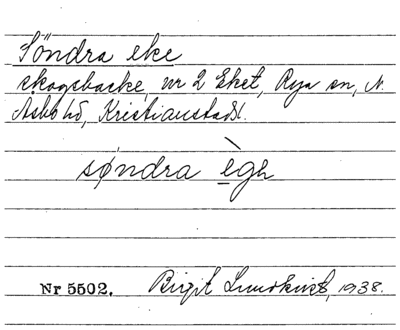 Söndra eke
skogsbacke nr 2 Eket, Rya sn, N.
Åsbo hd, Kristianstads l.
søndra ègh
Nr 5502. Birgit Lundkvist, 1938.